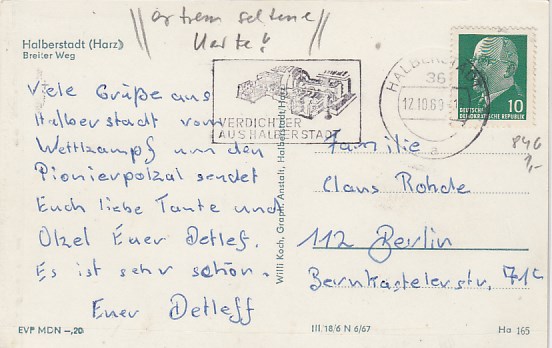 extrem seltene
Karte!
Halberstadt (Harz)
Breiter Weg
Viele Grüße aus
Halberstadt vom
Wettkampf um den
Pionierpokal sendet
Euch liebe Tante und
Onkel Euer Detlef.
Es ist sehr schön.
Euer Detleff
VERDICHTER
AUS HALBERSTADT
HALBERSTADT
36
12.10.69
a
DEUTSCHE
DEMOKRATISCHE REPUBLIK
10
846
1,-
Familie
Claus Rohde
112 Berlin
Bernkastelerstr. 71c
Willi Koch, Graph. Anstalt, Halberstadt/Harz
EVP MDN -,20
III/18/6 N 6/67
Ha 165